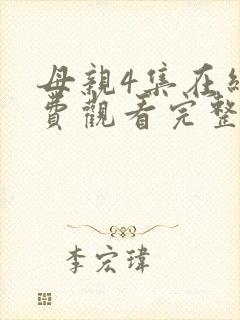 母親4集在線
費觀看完整
李宏瑋